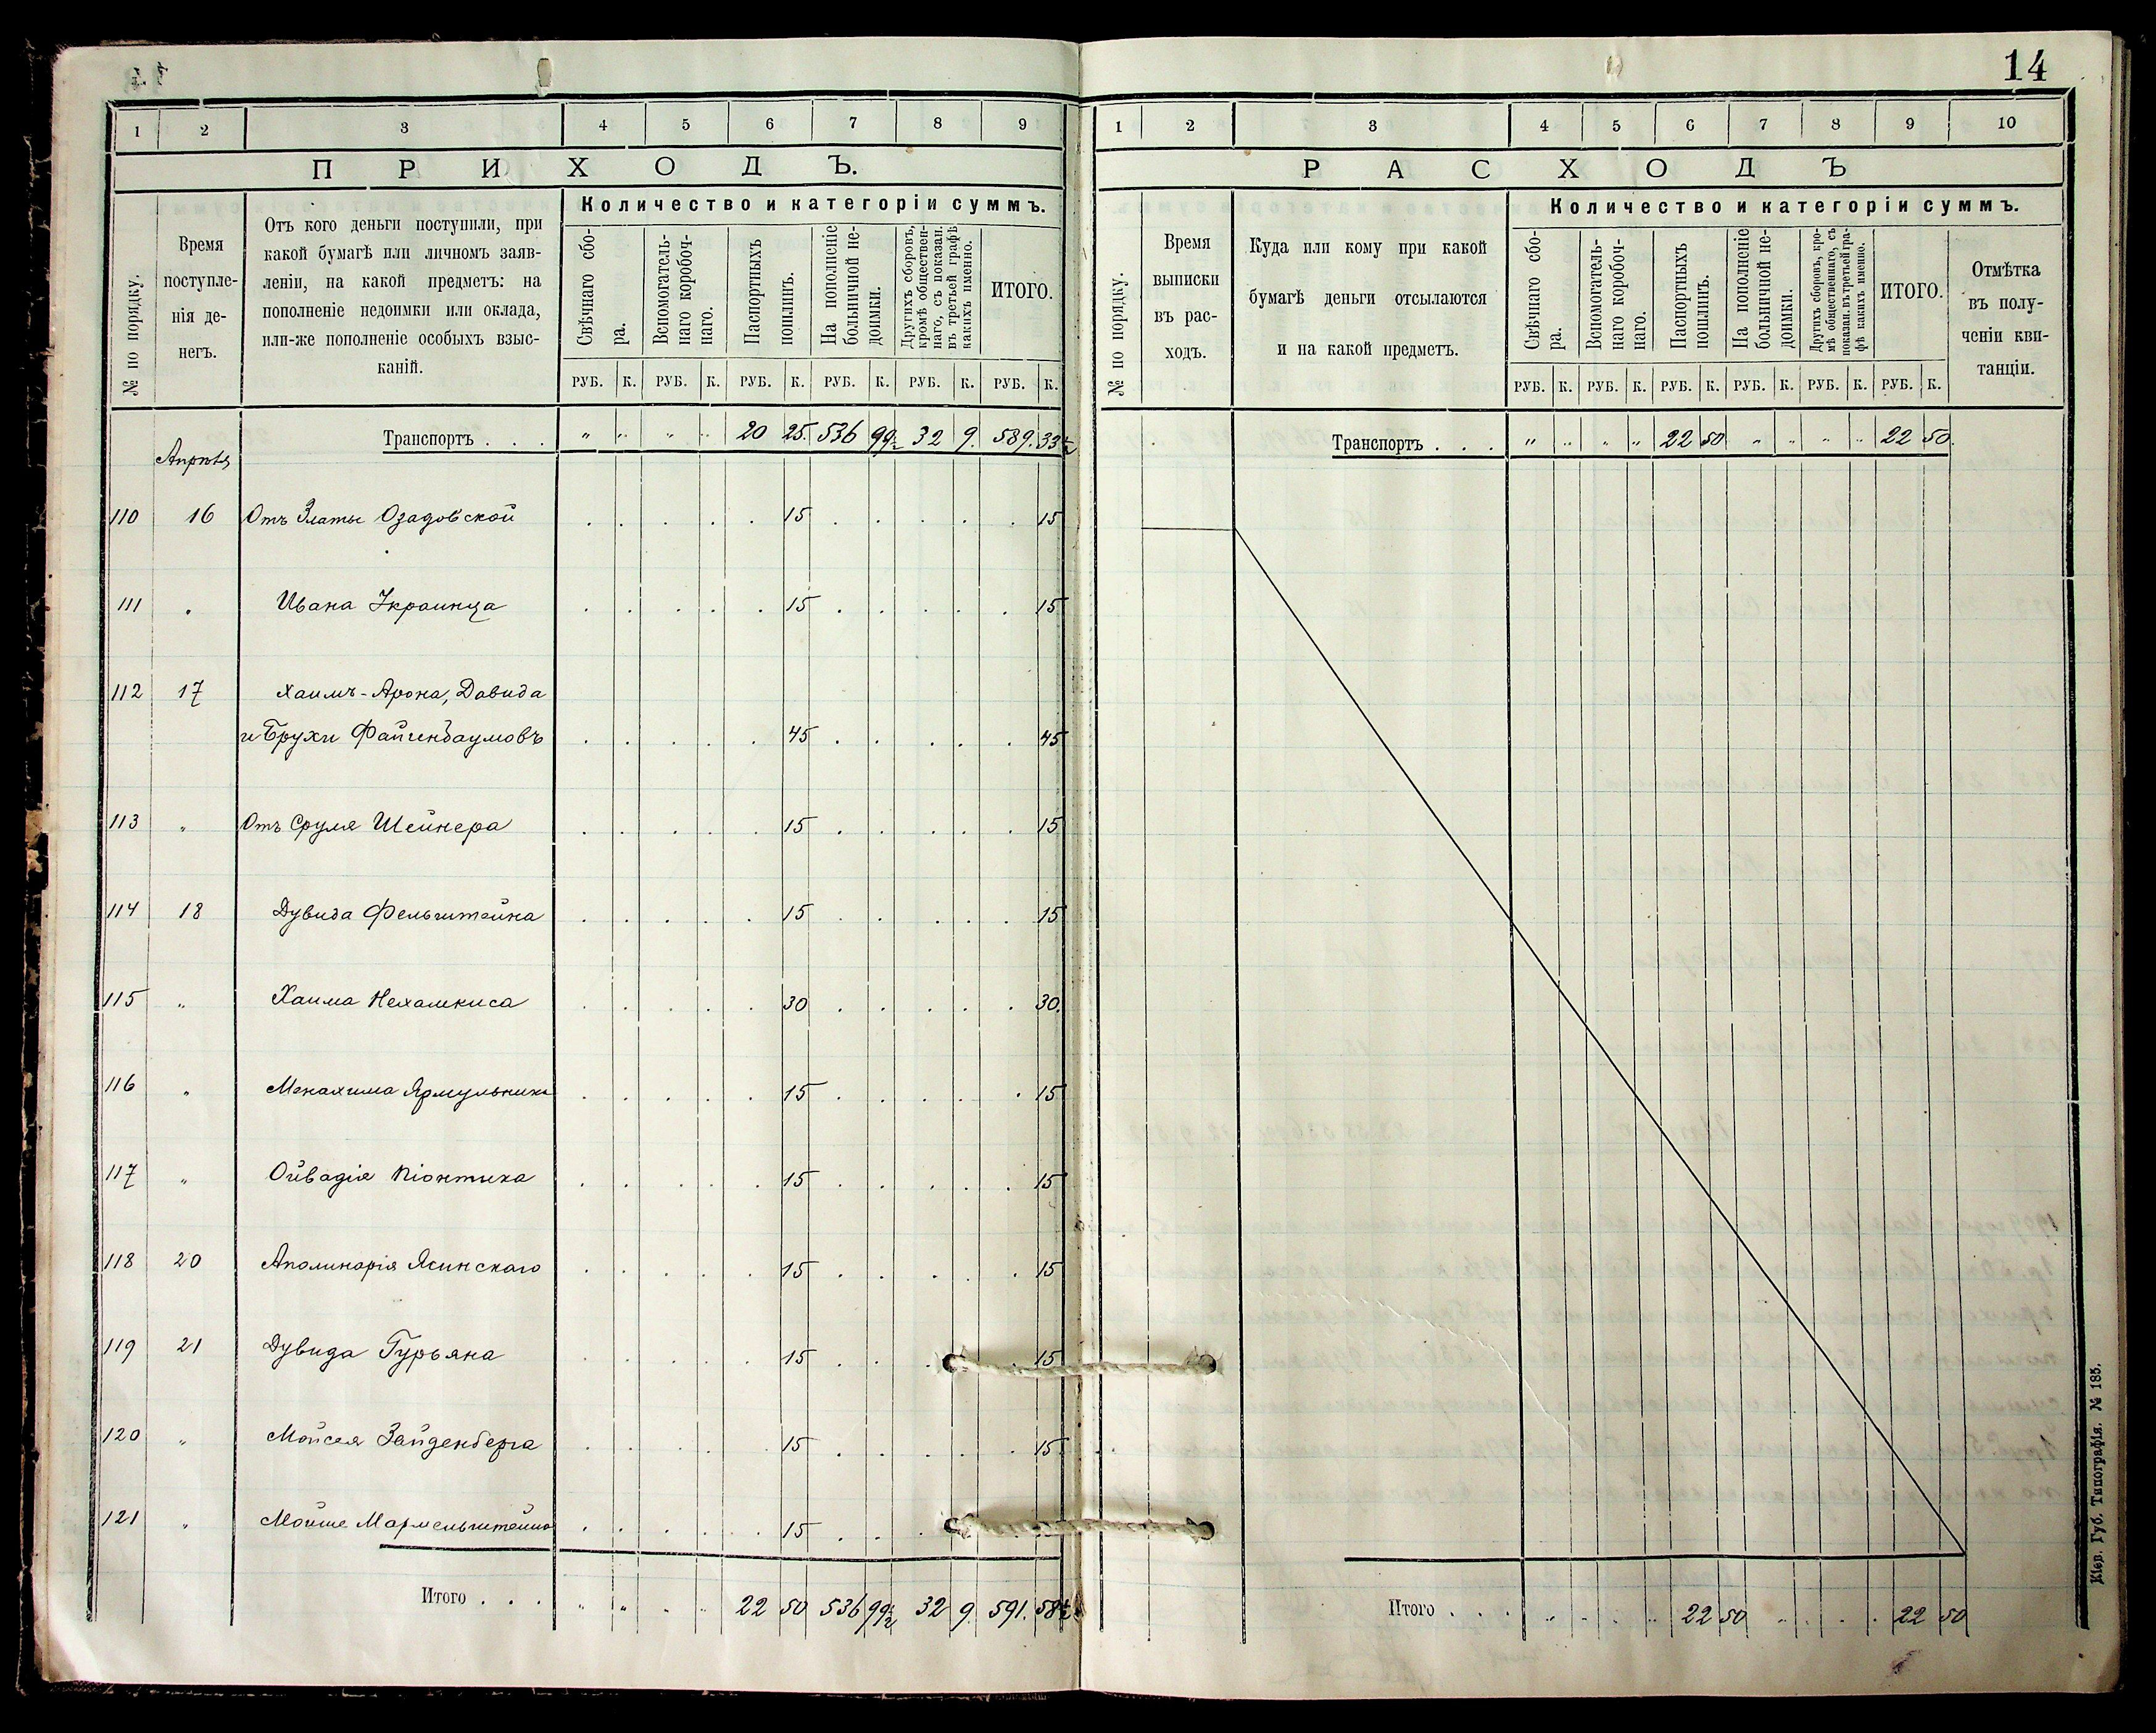 14
1 2 3 4 5 6 7 8 9
ПРИХОДЪ.
№ по порядку.
Время поступле-
нія де-
негъ.
Отъ кого деньги поступили, при
какой бумагѣ или личномъ заяв-
леніи, на какой предметъ: на
пополненіе недоимки или оклада,
или-же пополненіе особыхъ взыс-
каній.
Количество и категоріи суммъ.
Свѣчнаго сбо-
ра.
Вспомогатель-
наго коробоч-
наго.
Паспортныхъ
пошлинъ.
На пополненіе
больничной не-
доимки.
Другихъ сборовъ,
кромѣ обществен-
наго, съ показан.
въ третьей графѣ
какихъ именно.
ИТОГО.
РУБ. К. РУБ. К. РУБ. К. РУБ. К. РУБ. К. РУБ. К.
Транспортъ . . . " " " " 20 25. 536 99½ 32 9. 589. 33½
Апрѣль
110 16 Отъ Златы Озадовской 15 15
111 " Ивана Украинца 15 15
112 17 Хаимъ-Арона, Давида
и Брухи Файгенбаумовъ 45 45
113 " Отъ Сруля Шейнера 15 15
114 18 Дувида Фельштейна 15 15
115 " Хаима Нехамкиса 30 30.
116 " Менахима Ярмульника 15 15
117 " Ойвадія Піонтика 15 15
118 20 Аполинарія Ясинскаго 15 15
119 21 Дувида Гурьяна 15 15
120 " Мойсея Зайденберга 15 15
121 " Мойше Мармельштейна 15
Итого . . . " " " " 22 50 536 99½ 32 9 591. 58½
1 2 3 4 5 6 7 8 9 10
РАСХОДЪ
№ по порядку.
Время
выписки
въ рас-
ходъ.
Куда или кому при какой
бумагѣ деньги отсылаются
и на какой предметъ.
Количество и категоріи суммъ.
Свѣчнаго сбо-
ра.
Вспомогатель-
наго коробоч-
наго.
Паспортныхъ
пошлинъ.
На пополненіе
больничной не-
доимки.
Другихъ сборовъ, кро-
мѣ общественнаго, съ
показан. въ третьей гра-
фѣ какихъ именно.
ИТОГО.
Отмѣтка
въ полу-
ченіи кви-
танціи.
РУБ. К. РУБ. К. РУБ. К. РУБ. К. РУБ. К. РУБ. К.
Транспортъ . . . " " " " 22 50 " " " " 22 50.
Итого . . . " " " " 22 50 " " " " 22 50
Кіев. Губ. Типографія. № 185.